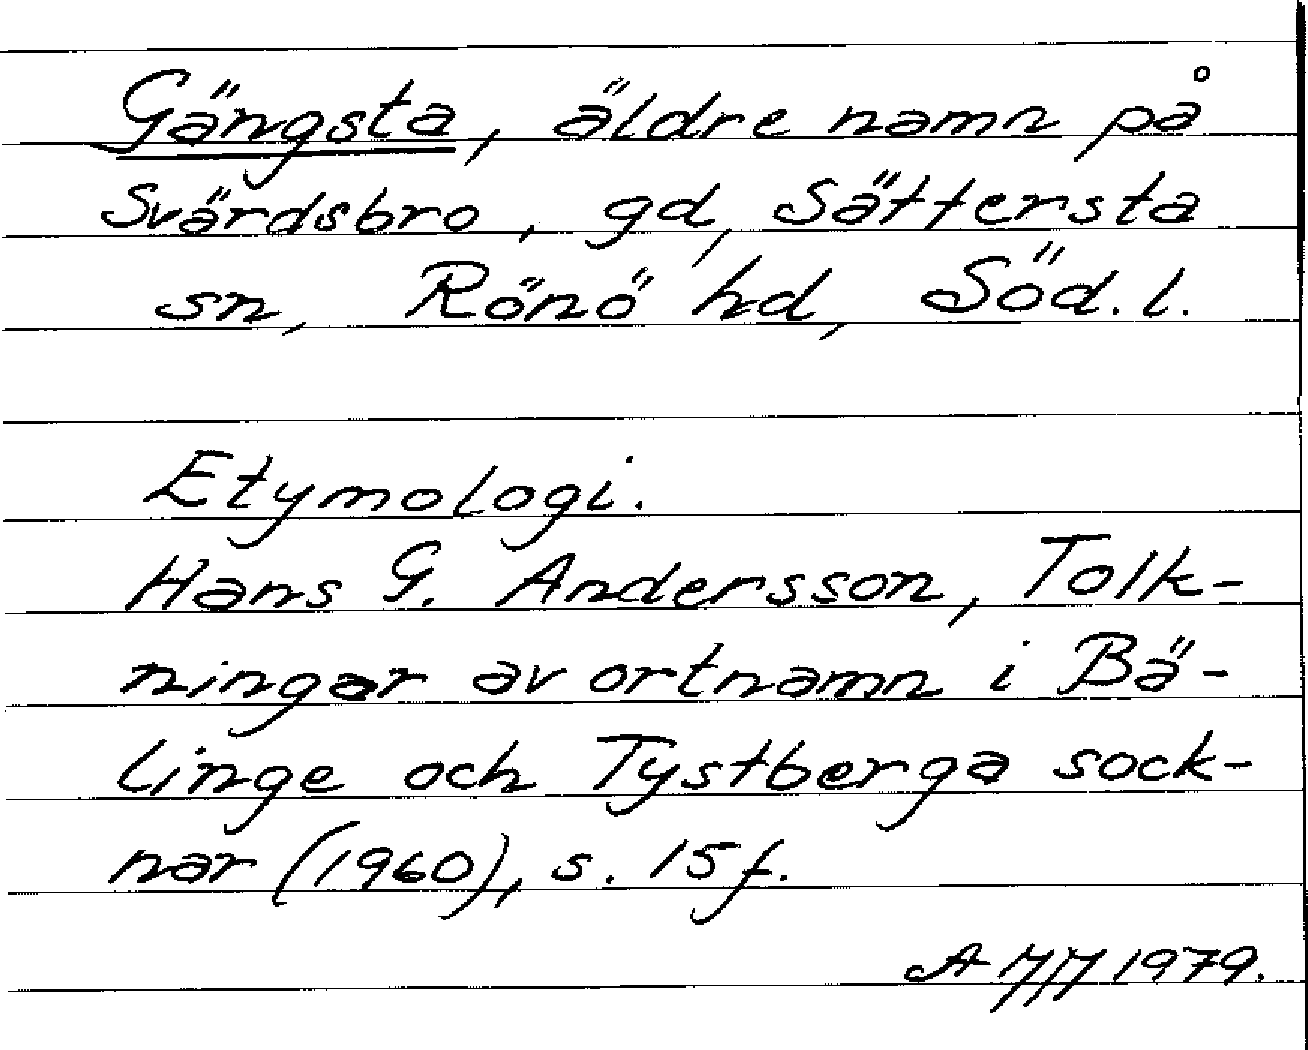 Gängsta, äldre namn på
Svärdsbro, gd, Sättersta
sn, Rönö hd, Söd. l.
Etymologi.
Hans G. Andersson, Tolk-
ningar av ortnamn i Bä-
linge och Tystberga sock-
nar (1960), s. 15 f.
1979.